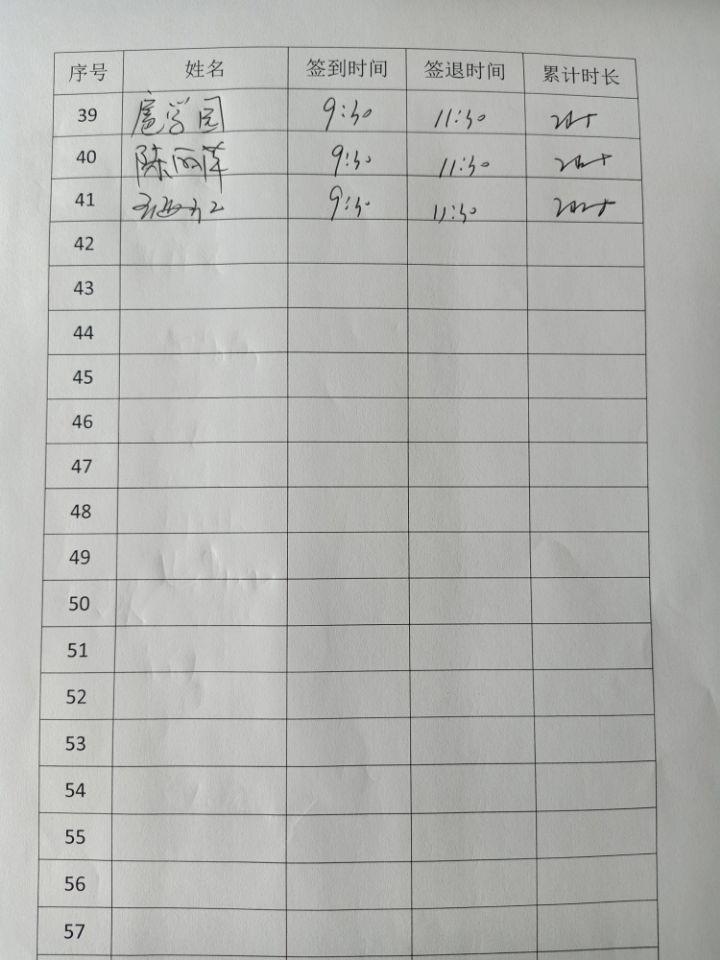 序号 姓名 签到时间 签退时间 累计时长
39 扈学园 9:30 11:30 2小时
40 陈丽萍 9:30 11:30 2小时
41 9:30 11:30 2小时
42
43
44
45
46
47
48
49
50
51
52
53
54
55
56
57